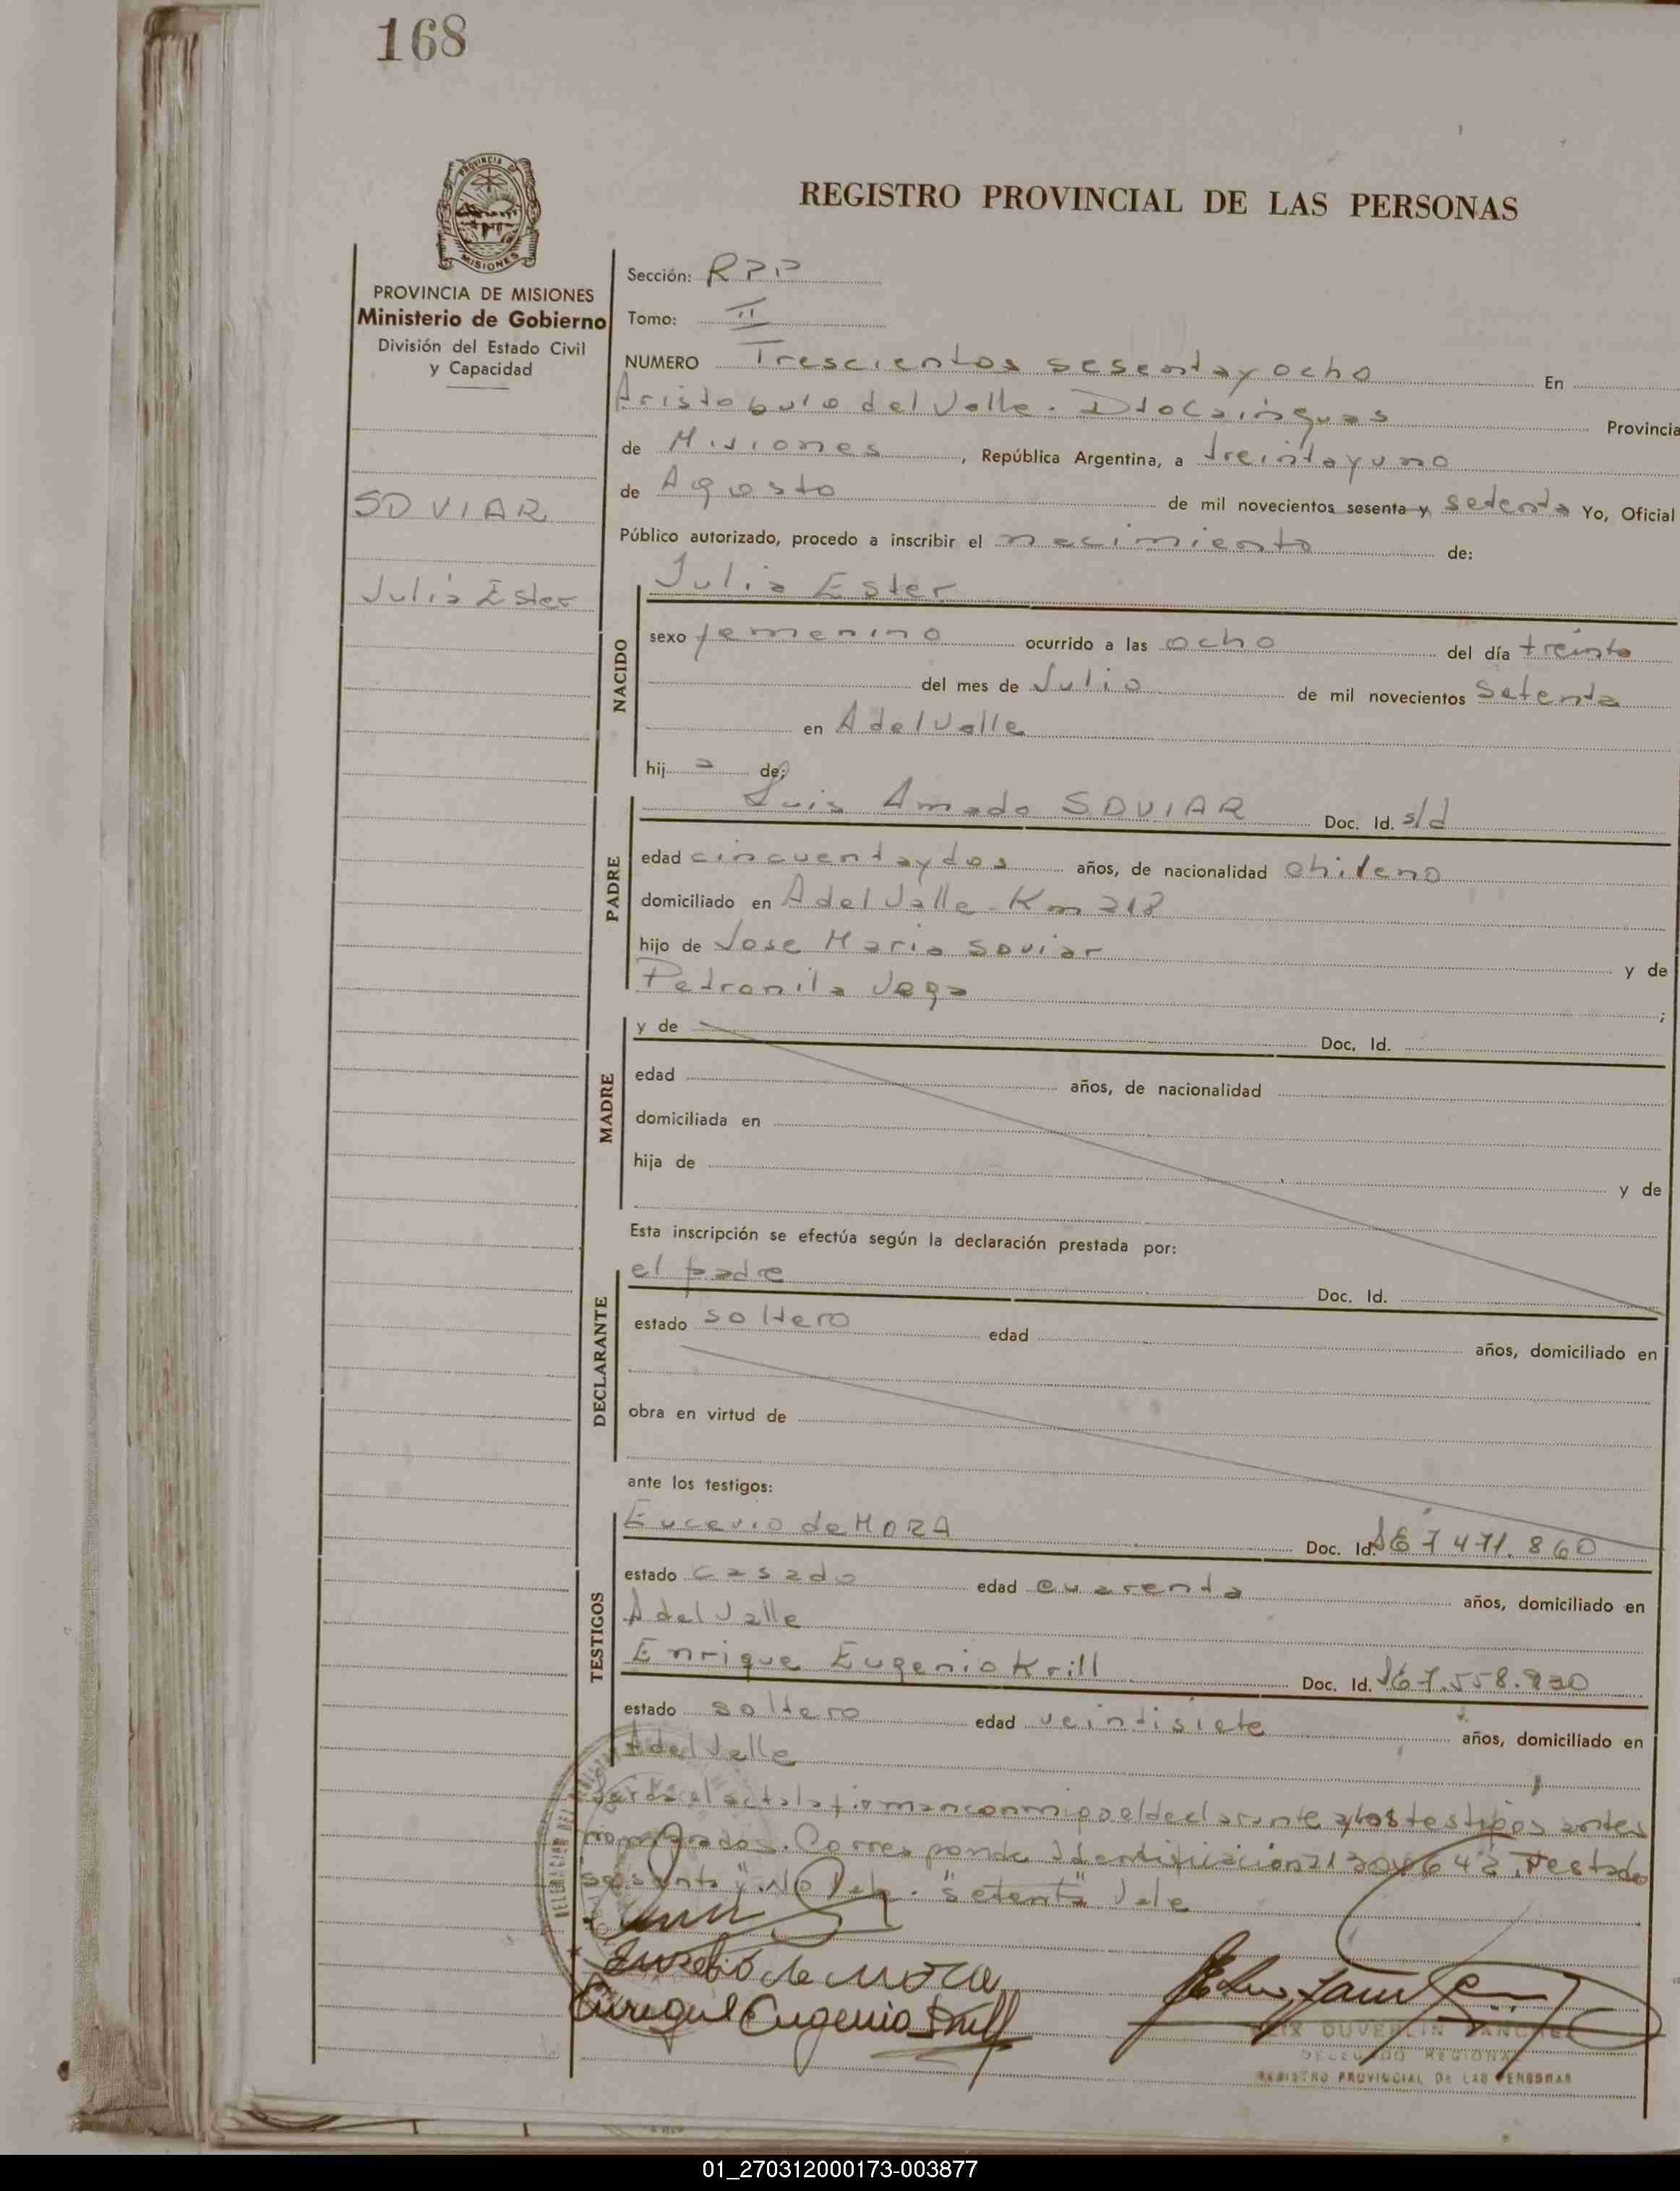 168
PROVINCIA DE MISIONES
REGISTRO PROVINCIAL DE LAS PERSONAS
PROVINCIA DE MISIONES
Ministerio de Gobierno
División del Estado Civil
y Capacidad
SOVIAR
Julia Ester
Sección: RPP
Tomo: II
NUMERO Trescientos sesentayocho En
Aristobulo del Valle. Dto Cainguas Provincia
de Misiones, República Argentina, a treintayuno
de Agosto de mil novecientos sesenta y setenta Yo, Oficial
Público autorizado, procedo a inscribir el nacimiento de:
NACIDO
Julia Ester
sexo femenino ocurrido a las ocho del día treinta
del mes de Julio de mil novecientos setenta
en A del Valle
hij a de:
PADRE
Luis Amado SOVIAR Doc. Id. s/d
edad cincuentaydos años, de nacionalidad chileno
domiciliado en A del Valle - Km 218
hijo de Jose Maria Soviar y de
Petronila Vega ;
MADRE
y de Doc. Id.
edad años, de nacionalidad
domiciliada en
hija de y de
Esta inscripción se efectúa según la declaración prestada por:
DECLARANTE
el padre Doc. Id.
estado soltero edad años, domiciliado en
obra en virtud de
ante los testigos:
TESTIGOS
Eucevio de MORA Doc. Id. 7471.860
estado casado edad cuarenta años, domiciliado en
A del Valle
Enrique Eugenio Krill Doc. Id. 7.558.930
estado soltero edad veintisiete años, domiciliado en
A del Valle
el acta la firman conmigo el declarante y los testigos antes
nombrados. Corresponde Identificación Testado
"sesenta y" No Vale. "setenta" Vale
Eusebio de Mora
Enrique Eugenio Krill
DUVERLIN SANCHEZ
DELEGADO REGIONAL
REGISTRO PROVINCIAL DE LAS PERSONAS
01_270312000173-003877